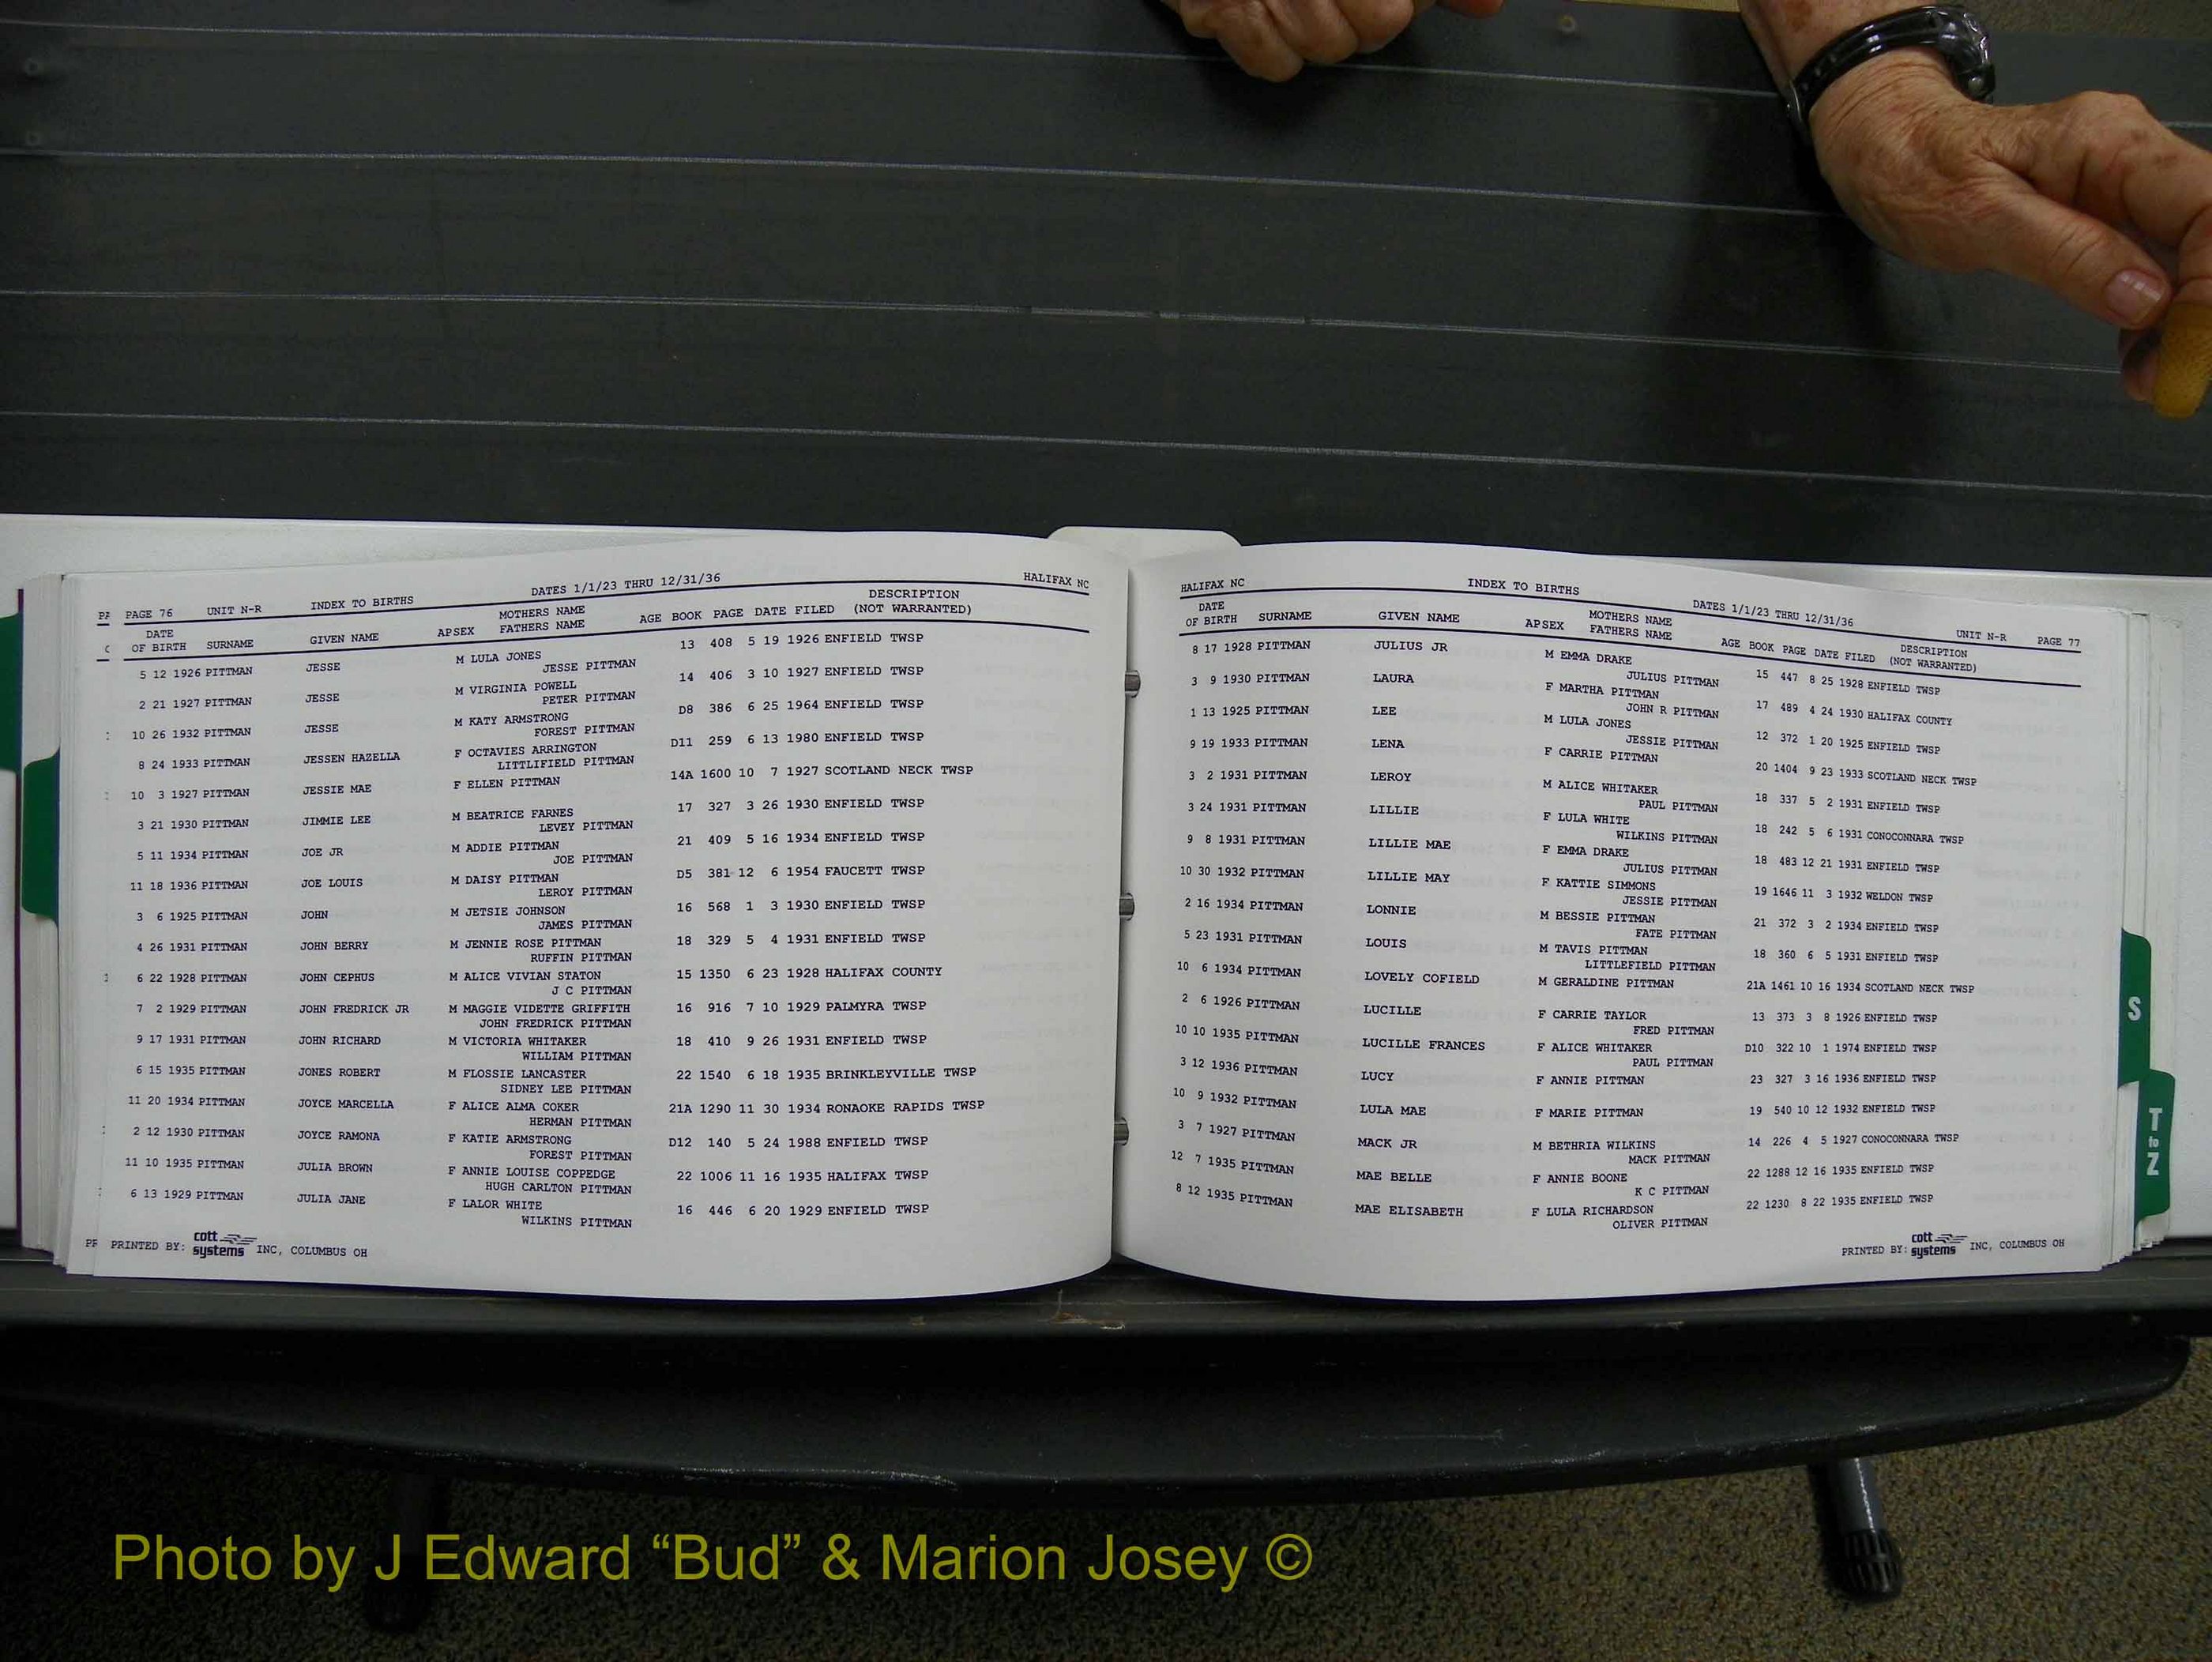 PAGE 76 UNIT N-R INDEX TO BIRTHS DATES 1/1/23 THRU 12/31/36 HALIFAX NC
DATE OF BIRTH SURNAME GIVEN NAME AP SEX MOTHERS NAME FATHERS NAME AGE BOOK PAGE DATE FILED DESCRIPTION (NOT WARRANTED)
5 12 1926 PITTMAN JESSE M LULA JONES 13 408 5 19 1926 ENFIELD TWSP
JESSE PITTMAN
2 21 1927 PITTMAN JESSE M VIRGINIA POWELL 14 406 3 10 1927 ENFIELD TWSP
PETER PITTMAN
10 26 1932 PITTMAN JESSE M KATY ARMSTRONG D8 386 6 25 1964 ENFIELD TWSP
FOREST PITTMAN
8 24 1933 PITTMAN JESSEN HAZELLA F OCTAVIES ARRINGTON D11 259 6 13 1980 ENFIELD TWSP
LITTLIFIELD PITTMAN
10 3 1927 PITTMAN JESSIE MAE F ELLEN PITTMAN 14A 1600 10 7 1927 SCOTLAND NECK TWSP
3 21 1930 PITTMAN JIMMIE LEE M BEATRICE FARNES 17 327 3 26 1930 ENFIELD TWSP
LEVEY PITTMAN
5 11 1934 PITTMAN JOE JR M ADDIE PITTMAN 21 409 5 16 1934 ENFIELD TWSP
JOE PITTMAN
11 18 1936 PITTMAN JOE LOUIS M DAISY PITTMAN D5 381 12 6 1954 FAUCETT TWSP
LEROY PITTMAN
3 6 1925 PITTMAN JOHN M JETSIE JOHNSON 16 568 1 3 1930 ENFIELD TWSP
JAMES PITTMAN
4 26 1931 PITTMAN JOHN BERRY M JENNIE ROSE PITTMAN 18 329 5 4 1931 ENFIELD TWSP
RUFFIN PITTMAN
6 22 1928 PITTMAN JOHN CEPHUS M ALICE VIVIAN STATON 15 1350 6 23 1928 HALIFAX COUNTY
J C PITTMAN
7 2 1929 PITTMAN JOHN FREDRICK JR M MAGGIE VIDETTE GRIFFITH 16 916 7 10 1929 PALMYRA TWSP
JOHN FREDRICK PITTMAN
9 17 1931 PITTMAN JOHN RICHARD M VICTORIA WHITAKER 18 410 9 26 1931 ENFIELD TWSP
WILLIAM PITTMAN
6 15 1935 PITTMAN JONES ROBERT M FLOSSIE LANCASTER 22 1540 6 18 1935 BRINKLEYVILLE TWSP
SIDNEY LEE PITTMAN
11 20 1934 PITTMAN JOYCE MARCELLA F ALICE ALMA COKER 21A 1290 11 30 1934 RONAOKE RAPIDS TWSP
HERMAN PITTMAN
2 12 1930 PITTMAN JOYCE RAMONA F KATIE ARMSTRONG D12 140 5 24 1988 ENFIELD TWSP
FOREST PITTMAN
11 10 1935 PITTMAN JULIA BROWN F ANNIE LOUISE COPPEDGE 22 1006 11 16 1935 HALIFAX TWSP
HUGH CARLTON PITTMAN
6 13 1929 PITTMAN JULIA JANE F LALOR WHITE 16 446 6 20 1929 ENFIELD TWSP
WILKINS PITTMAN
PRINTED BY: cott systems INC, COLUMBUS OH
HALIFAX NC INDEX TO BIRTHS DATES 1/1/23 THRU 12/31/36 UNIT N-R PAGE 77
DATE OF BIRTH SURNAME GIVEN NAME AP SEX MOTHERS NAME FATHERS NAME AGE BOOK PAGE DATE FILED DESCRIPTION (NOT WARRANTED)
8 17 1928 PITTMAN JULIUS JR M EMMA DRAKE 15 447 8 25 1928 ENFIELD TWSP
JULIUS PITTMAN
3 9 1930 PITTMAN LAURA F MARTHA PITTMAN 17 489 4 24 1930 HALIFAX COUNTY
JOHN R PITTMAN
1 13 1925 PITTMAN LEE M LULA JONES 12 372 1 20 1925 ENFIELD TWSP
JESSIE PITTMAN
9 19 1933 PITTMAN LENA F CARRIE PITTMAN 20 1404 9 23 1933 SCOTLAND NECK TWSP
3 2 1931 PITTMAN LEROY M ALICE WHITAKER 18 337 5 2 1931 ENFIELD TWSP
PAUL PITTMAN
3 24 1931 PITTMAN LILLIE F LULA WHITE 18 242 5 6 1931 CONOCONNARA TWSP
WILKINS PITTMAN
9 8 1931 PITTMAN LILLIE MAE F EMMA DRAKE 18 483 12 21 1931 ENFIELD TWSP
JULIUS PITTMAN
10 30 1932 PITTMAN LILLIE MAY F KATTIE SIMMONS 19 1646 11 3 1932 WELDON TWSP
JESSIE PITTMAN
2 16 1934 PITTMAN LONNIE M BESSIE PITTMAN 21 372 3 2 1934 ENFIELD TWSP
FATE PITTMAN
5 23 1931 PITTMAN LOUIS M TAVIS PITTMAN 18 360 6 5 1931 ENFIELD TWSP
LITTLEFIELD PITTMAN
10 6 1934 PITTMAN LOVELY COFIELD M GERALDINE PITTMAN 21A 1461 10 16 1934 SCOTLAND NECK TWSP
2 6 1926 PITTMAN LUCILLE F CARRIE TAYLOR 13 373 3 8 1926 ENFIELD TWSP
FRED PITTMAN
10 10 1935 PITTMAN LUCILLE FRANCES F ALICE WHITAKER D10 322 10 1 1974 ENFIELD TWSP
PAUL PITTMAN
3 12 1936 PITTMAN LUCY F ANNIE PITTMAN 23 327 3 16 1936 ENFIELD TWSP
10 9 1932 PITTMAN LULA MAE F MARIE PITTMAN 19 540 10 12 1932 ENFIELD TWSP
3 7 1927 PITTMAN MACK JR M BETHRIA WILKINS 14 226 4 5 1927 CONOCONNARA TWSP
MACK PITTMAN
12 7 1935 PITTMAN MAE BELLE F ANNIE BOONE 22 1288 12 16 1935 ENFIELD TWSP
K C PITTMAN
8 12 1935 PITTMAN MAE ELISABETH F LULA RICHARDSON 22 1230 8 22 1935 ENFIELD TWSP
OLIVER PITTMAN
PRINTED BY: cott systems INC, COLUMBUS OH
S
T to Z
Photo by J Edward “Bud” & Marion Josey ©